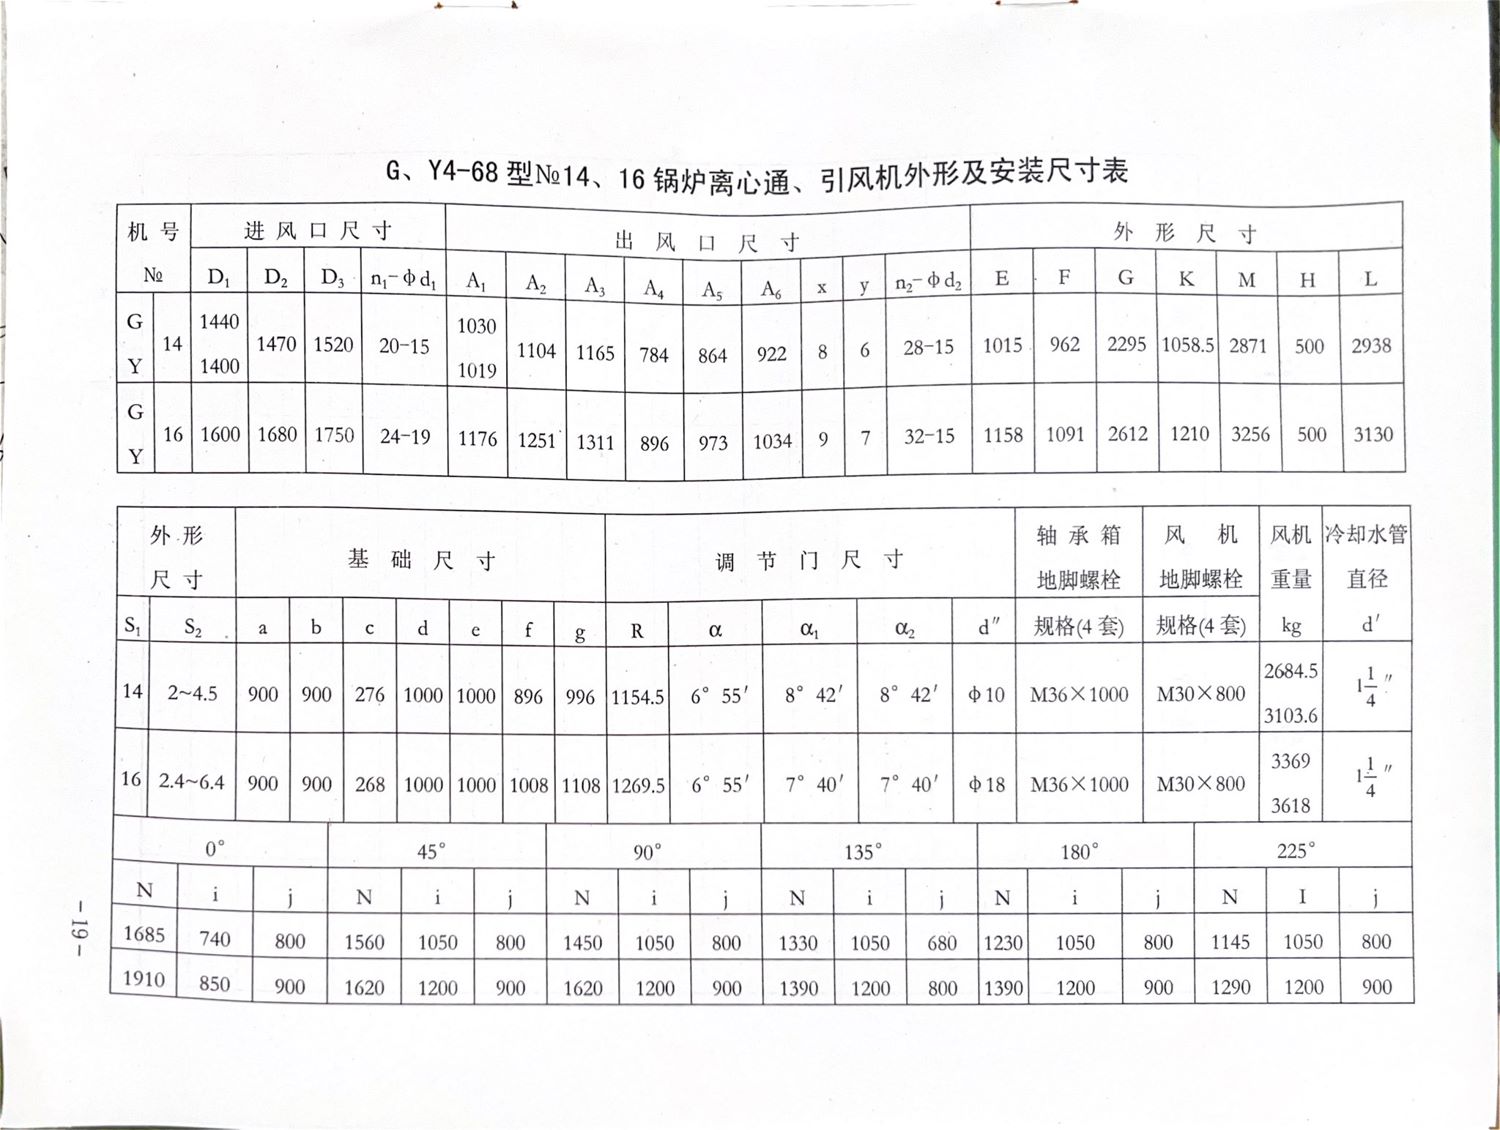 G、Y4-68 型№14、16 锅炉离心通、引风机外形及安装尺寸表
机 号 进 风 口 尺 寸 出 风 口 尺 寸 外 形 尺 寸
№ D₁ D₂ D₃ n₁-φd₁ A₁ A₂ A₃ A₄ A₅ A₆ x y n₂-φd₂ E F G K M H L
G 1440 1030
14 1470 1520 20-15 1104 1165 784 864 922 8 6 28-15 1015 962 2295 1058.5 2871 500 2938
Y 1400 1019
G
16 1600 1680 1750 24-19 1176 1251 1311 896 973 1034 9 7 32-15 1158 1091 2612 1210 3256 500 3130
Y
外 形 轴 承 箱 风 机 风机 冷却水管
基 础 尺 寸 调 节 门 尺 寸
尺 寸 地脚螺栓 地脚螺栓 重量 直径
S₁ S₂ a b c d e f g R α α₁ α₂ d″ 规格(4 套) 规格(4 套) kg d′
2684.5
14 2~4.5 900 900 276 1000 1000 896 996 1154.5 6° 55′ 8° 42′ 8° 42′ φ10 M36×1000 M30×800 1 1/4″
3103.6
3369
16 2.4~6.4 900 900 268 1000 1000 1008 1108 1269.5 6° 55′ 7° 40′ 7° 40′ φ18 M36×1000 M30×800 1 1/4″
3618
0° 45° 90° 135° 180° 225°
N i j N i j N i j N i j N i j N I j
1685 740 800 1560 1050 800 1450 1050 800 1330 1050 680 1230 1050 800 1145 1050 800
1910 850 900 1620 1200 900 1620 1200 900 1390 1200 800 1390 1200 900 1290 1200 900
- 19 -